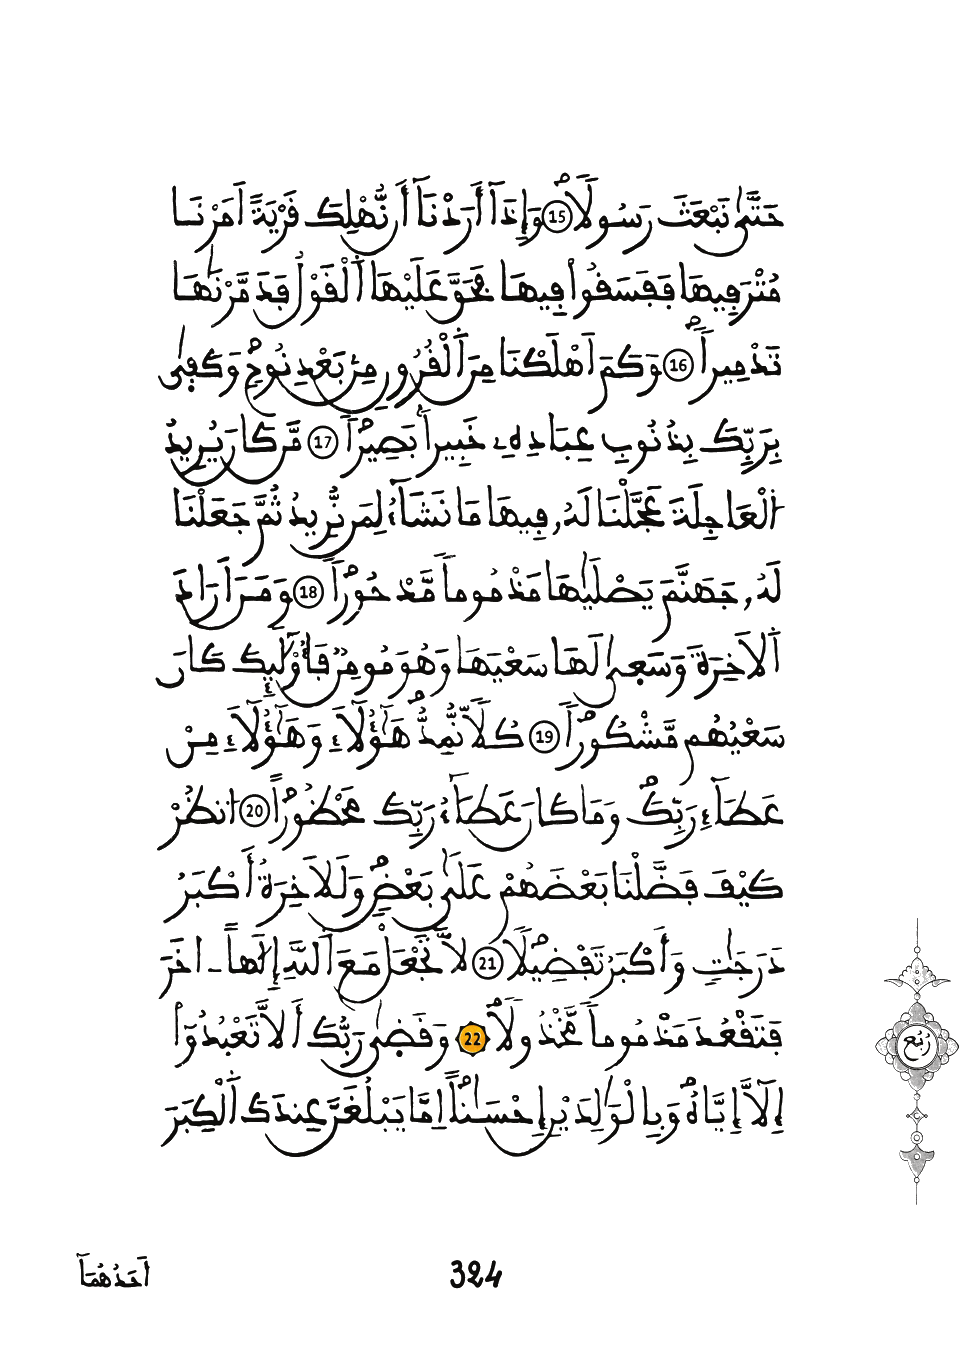 حَتَّىٰ نَبْعَثَ رَسُولاًۖ 15 وَإِذَآ أَرَدْنَآ أَن نُّهْلِكَ قَرْيَةً اَمَرْنَا
مُتْرَفِيهَا فَفَسَقُواْ فِيهَا فَحَقَّ عَلَيْهَا اَ۬لْقَوْلُ فَدَمَّرْنَٰهَا
تَدْمِيراٗۖ 16 وَكَمَ اَهْلَكْنَا مِنَ اَ۬لْقُرُونِ مِنۢ بَعْدِ نُوحٖۖ وَكَفَىٰ
بِرَبِّكَ بِذُنُوبِ عِبَادِهِۦ خَبِيراَۢ بَصِيراٗۖ 17 مَّن كَانَ يُرِيدُ
اُ۬لْعَاجِلَةَ عَجَّلْنَا لَهُۥ فِيهَا مَا نَشَآءُ لِمَن نُّرِيدُ ثُمَّ جَعَلْنَا
لَهُۥ جَهَنَّمَ يَصْلَيٰهَا مَذْمُوماٗ مَّدْحُوراٗۖ 18 وَمَنَ اَرَادَ
اَ۬لَاخِرَةَ وَسَعَىٰ لَهَا سَعْيَهَا وَهُوَ مُومِنٞ فَأُوْلَٰٓئِكَ كَانَ
سَعْيُهُم مَّشْكُوراٗۖ 19 كُلّاٗ نُّمِدُّۖ هَٰٓؤُلَآءِ وَهَٰٓؤُلَآءِ مِنْ
عَطَآءِ رَبِّكَۖ وَمَا كَانَ عَطَآءُ رَبِّكَ مَحْظُوراًۖ 20 اُ۟نظُرْ
كَيْفَ فَضَّلْنَا بَعْضَهُمْ عَلَىٰ بَعْضٖۖ وَلَلَاخِرَةُ أَكْبَرُ
دَرَجَٰتٖ وَأَكْبَرُ تَفْضِيلاٗۖ 21 لَّا تَجْعَلْ مَعَ اَ۬للَّهِ إِلَٰهاً اٰخَرَ
فَتَقْعُدَ مَذْمُوماٗ مَّخْذُولاٗۖ 22 وَقَضَىٰ رَبُّكَ أَلَّا تَعْبُدُوٓاْ
إِلَّآ إِيَّاهُۖ وَبِالْوَٰلِدَيْنِ إِحْسَٰناًۖ اِمَّا يَبْلُغَنَّ عِندَكَ اَ۬لْكِبَرَ
رُبُع
324
أَحَدُهُمَآ